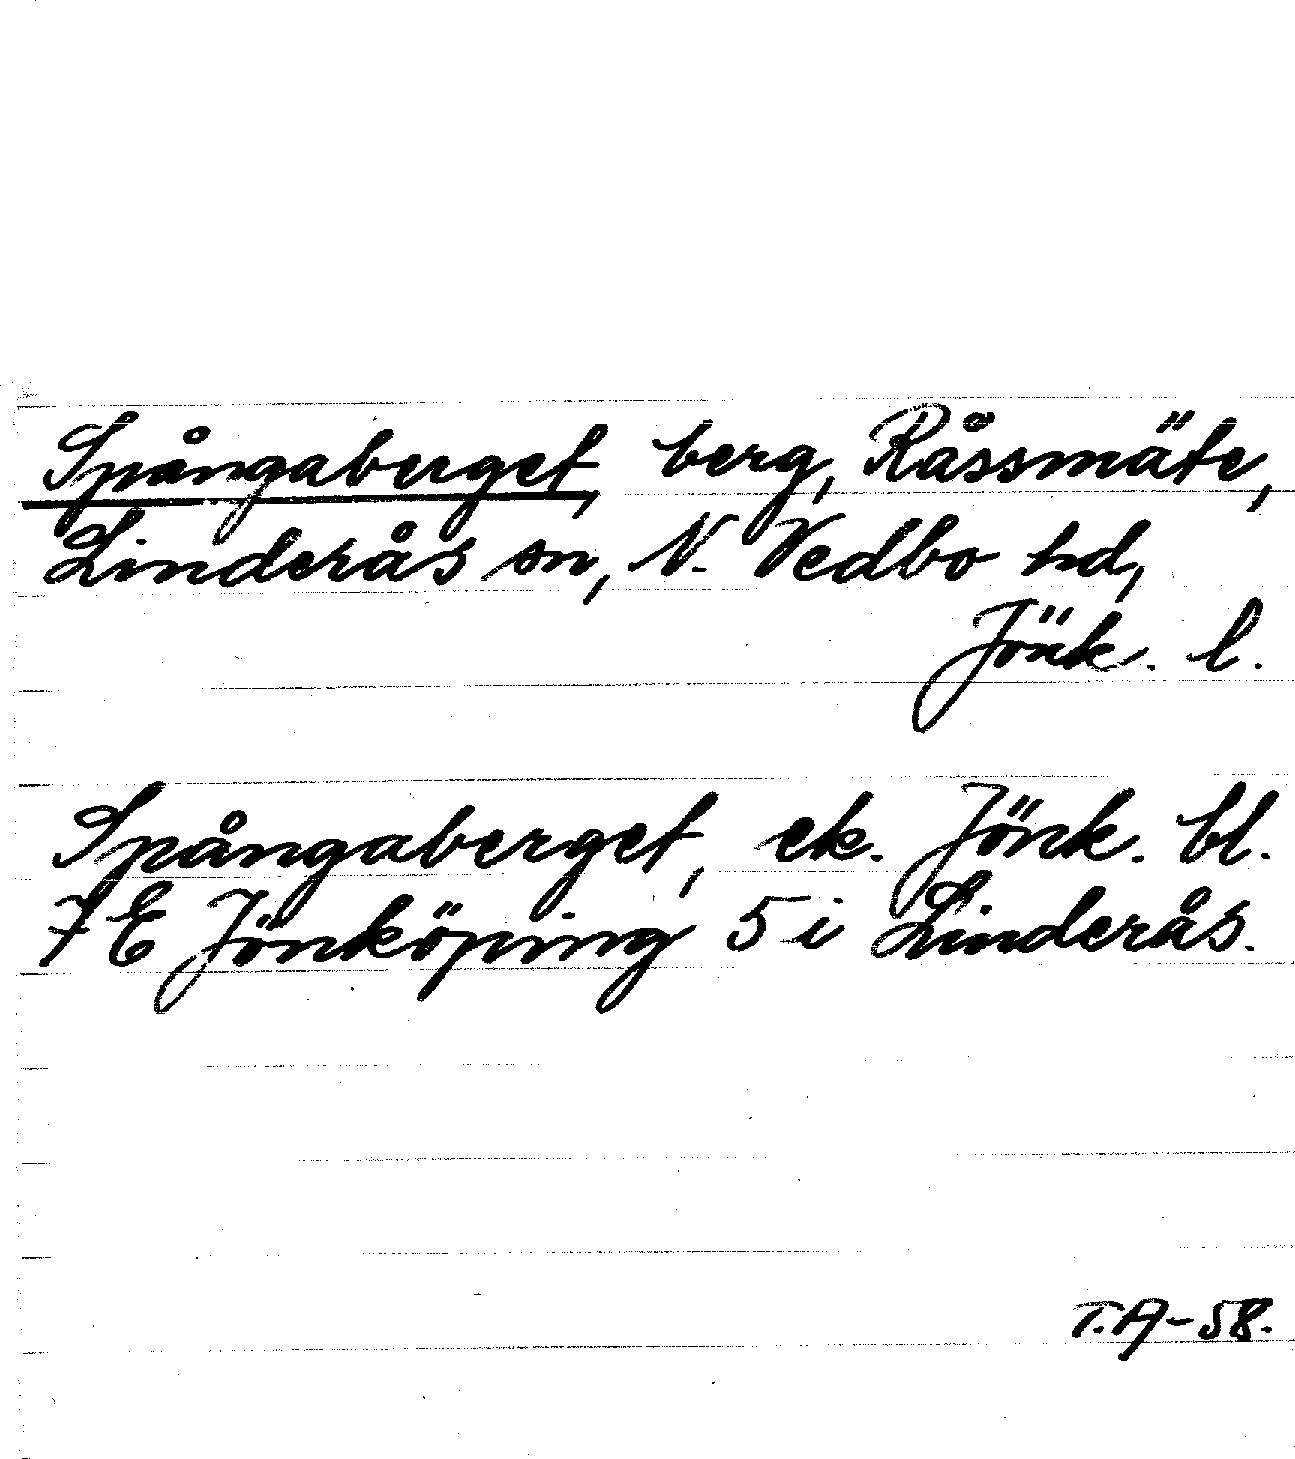 Spångaberget, berg, Råssmäte,
Linderås sn, N. Vedbo hd,
Jönk. l.
Spångaberget, ek. Jönk. bl.
7E Jönköping 5 i Linderås.
T.A-58.